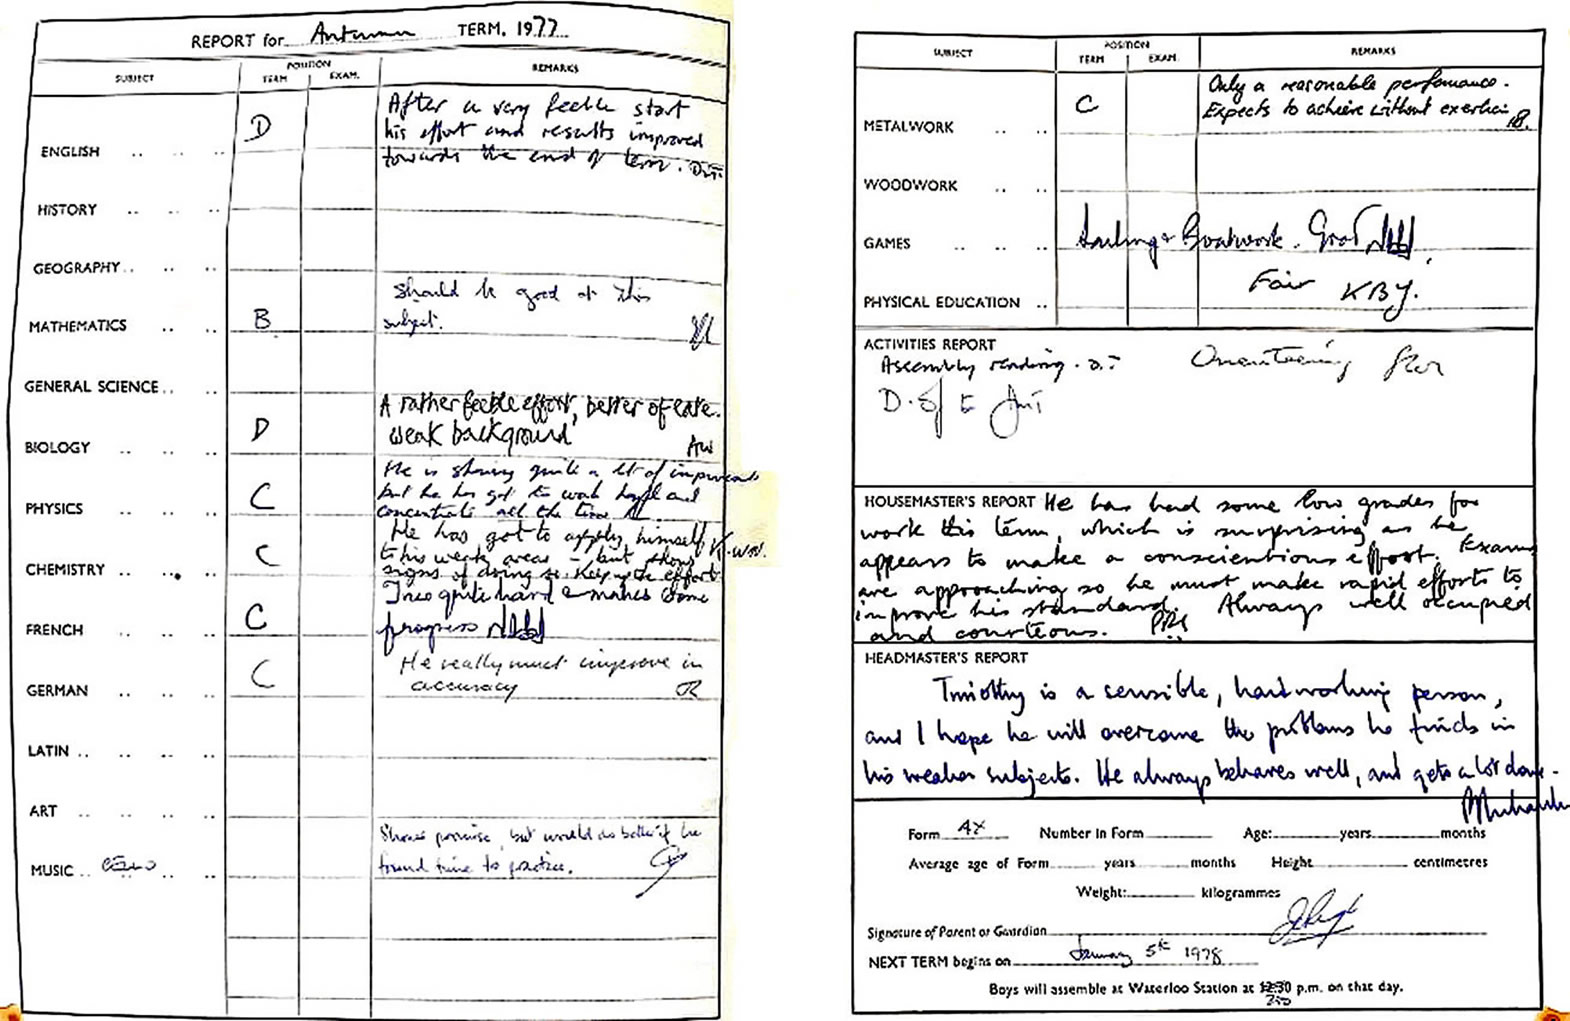 REPORT for Autumn TERM, 1977
SUBJECT
POSITION
TERM EXAM.
REMARKS
ENGLISH .. .. ..
D
After a very feeble start
his effort and results improved
towards the end of term.
HISTORY .. .. ..
GEOGRAPHY .. .. ..
MATHEMATICS .. ..
B
Should be good at this
subject.
GENERAL SCIENCE .. ..
BIOLOGY .. .. ..
D
A rather feeble effort, better of late.
weak background
AW
PHYSICS .. .. ..
C
He is showing quite a lot of improvement
but he has got to work hard and
concentrate all the time
CHEMISTRY .. .. ..
C
He has got to apply himself
to his weak areas - but shows
signs of doing so. Keep up the effort
K.W.N.
FRENCH .. .. ..
C
Tries quite hard & makes some
progress
GERMAN .. .. ..
C
He really must improve in
accuracy
LATIN .. .. ..
ART .. .. ..
MUSIC .. CELLO .. ..
Shows promise, but would do better if he
found time to practice.
SUBJECT
POSITION
TERM EXAM.
REMARKS
METALWORK .. ..
C
Only a reasonable performance.
Expects to achieve without exertion
WOODWORK .. ..
GAMES .. .. ..
Sailing & Boatwork. Good
PHYSICAL EDUCATION ..
Fair KBY.
ACTIVITIES REPORT
Assembly reading. Orienteering
D. of E
HOUSEMASTER'S REPORT He has had some low grades for
work this term, which is surprising as he
appears to make a conscientious effort. Exams
are approaching so he must make rapid efforts to
improve his standard. Always well occupied
and courteous.
HEADMASTER'S REPORT
Timothy is a sensible, hardworking person,
and I hope he will overcome the problems he finds in
his weaker subjects. He always behaves well, and gets a lot done.
Form 4X Number in Form Age: years months
Average age of Form years months Height centimetres
Weight: kilogrammes
Signature of Parent or Guardian
NEXT TERM begins on January 5th 1978
Boys will assemble at Waterloo Station at 12.30 p.m. on that day.